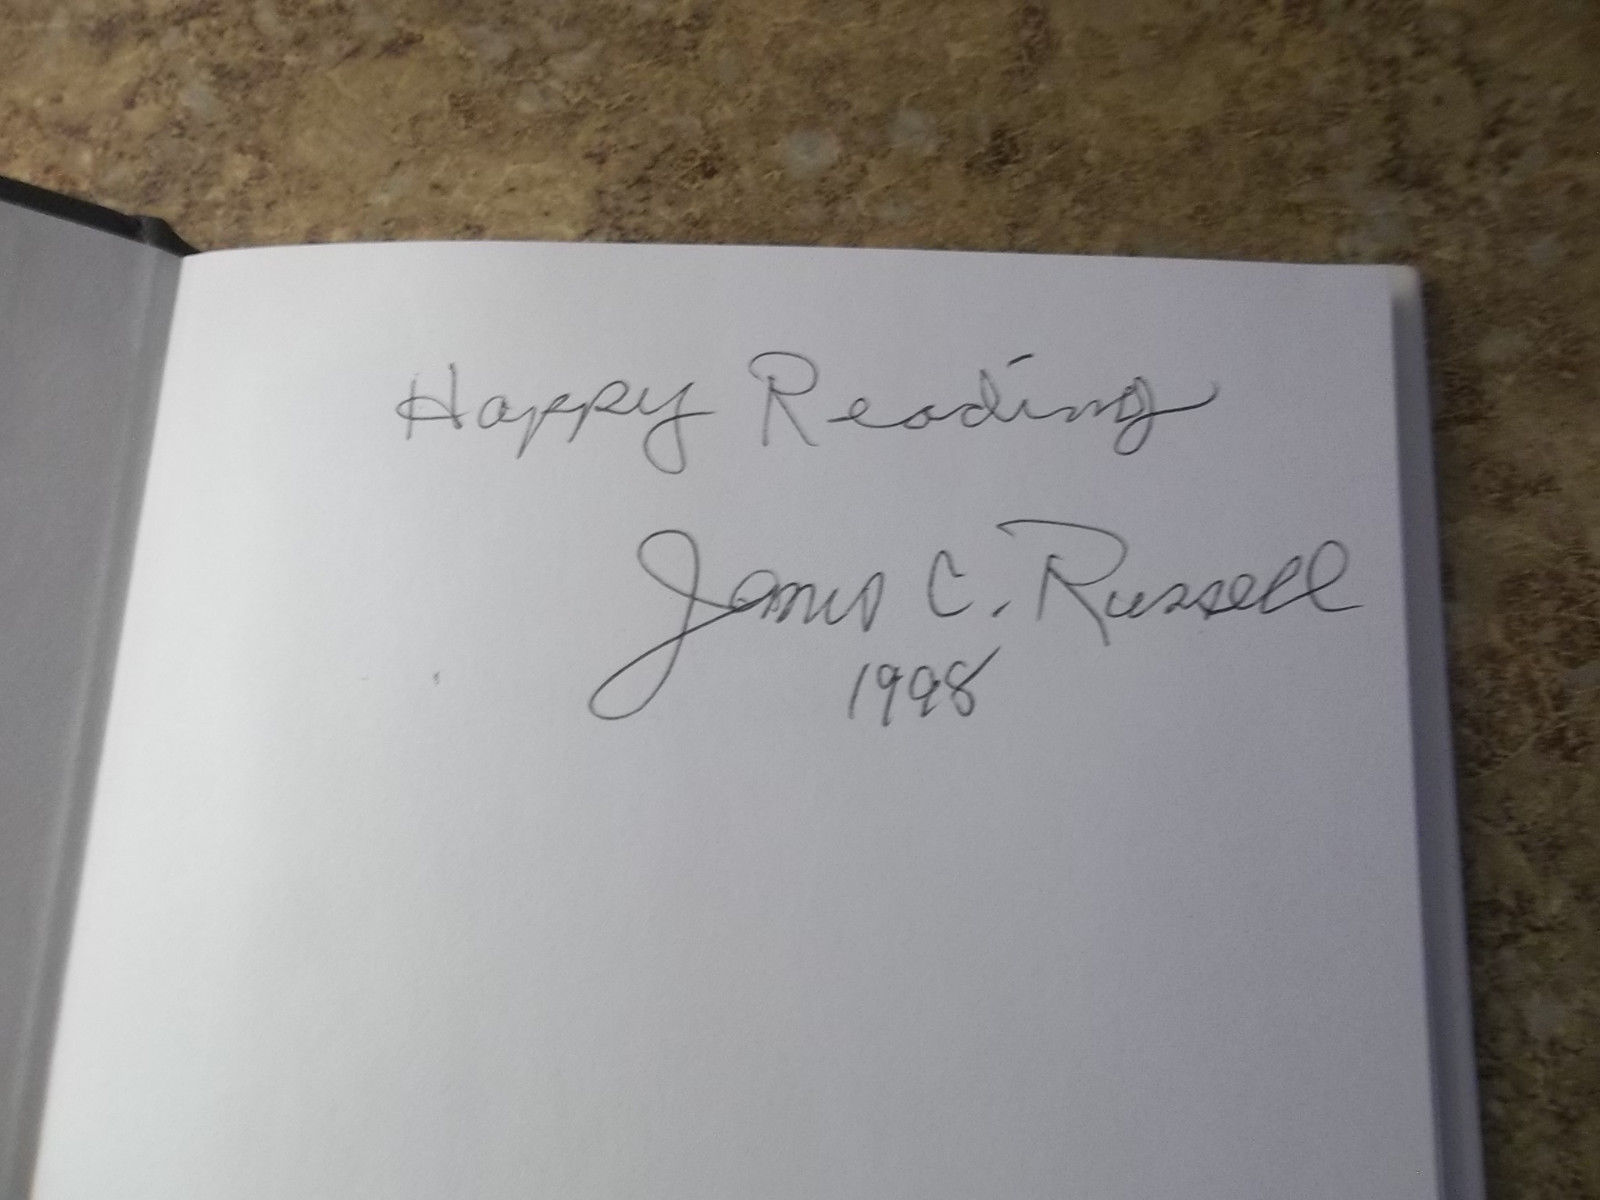 Happy Reading
James C. Russell
1998